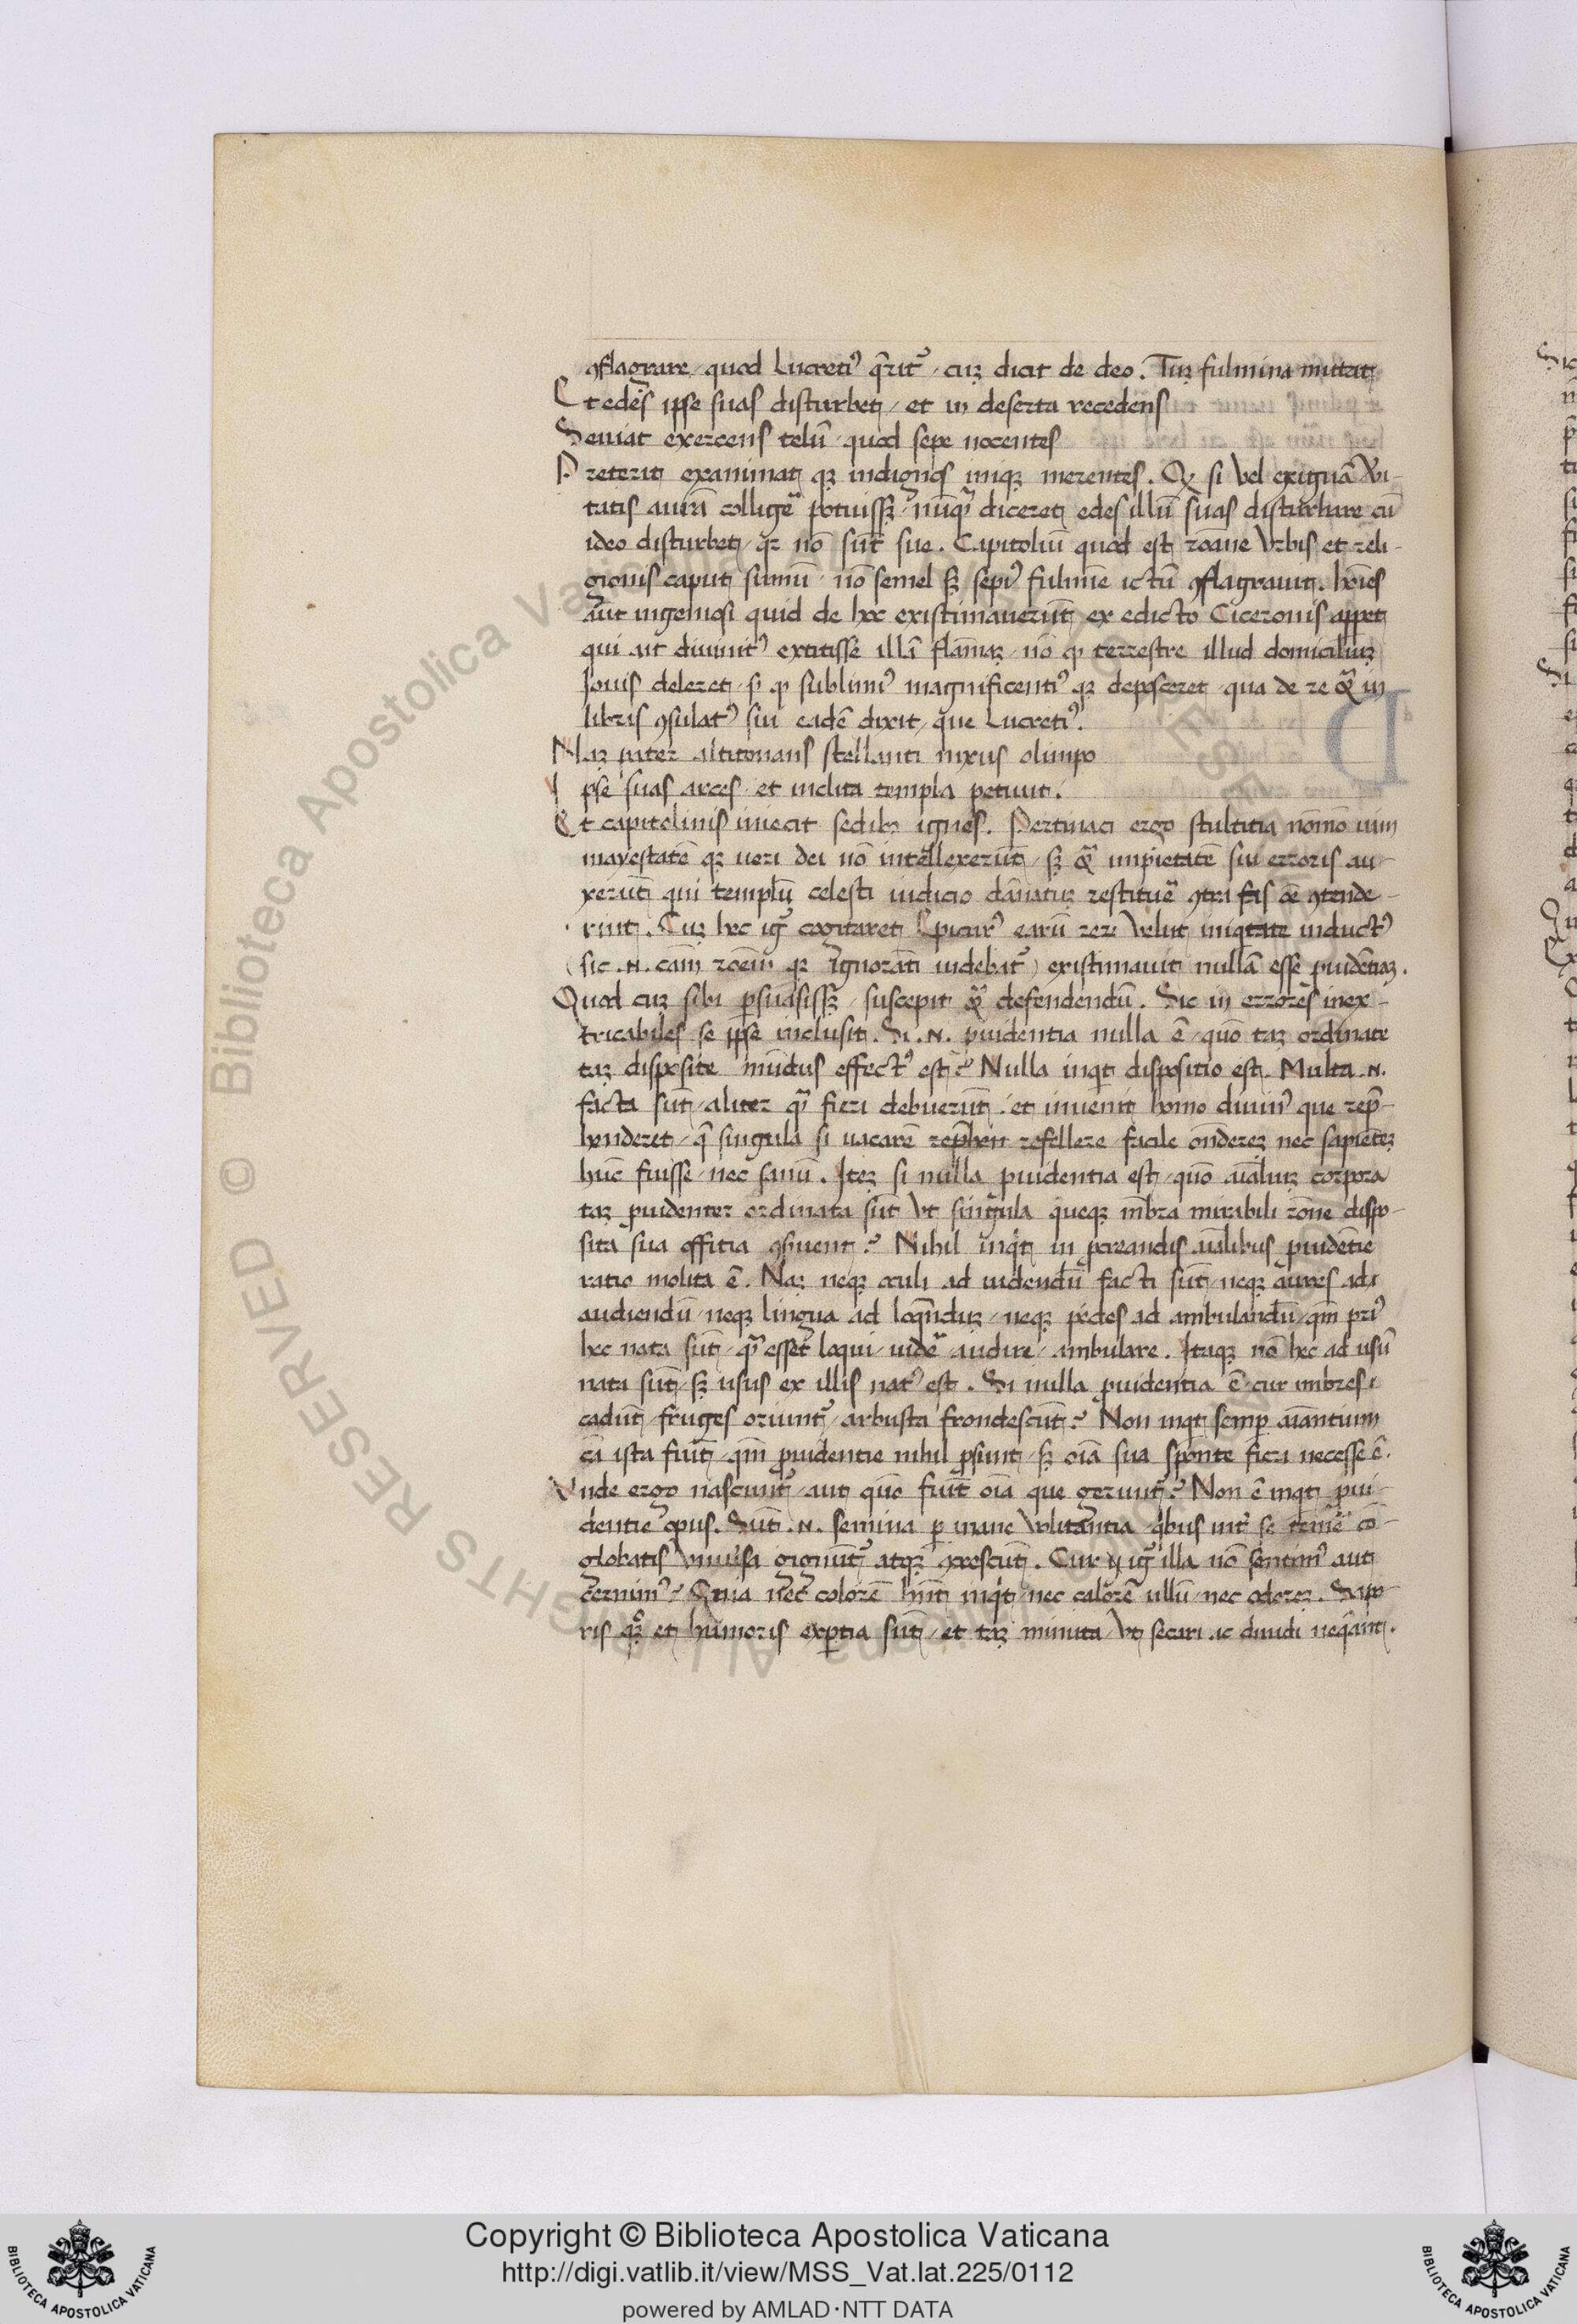 ꝯflagrare / quod Lucretiꝰ q̄rit᷒ / cuꝫ dicit de deo. Tuꝫ fulmina mittat
Et edes ipse suas disturbet / et in deserta recedens
Seuiat exercens telū / quod sepe nocentes
Preterit examinat qꝫ indignos inıqꝫ merentes. Qꝫ si vel exiguā v̄i-
tatis aurā collige᷒ potuissꝫ / nūqꝫ diceret edes illū suas disturbare cū
ideo disturbet / qꝛ nō sūt sue. Capitoliū quod est romane vrbis et reli-
gionis caput sumū / nō semel sꝫ sepiꝰ fulmīe ictū ꝯflagrauit. hoīes
aūt ingeniosi quid de hoc existimauerūt ex edicto Ciceronis apꝑet
qui ait diuinitꝰ extitisse illā flāmaꝫ / nō ꝙ terrestre illud domiciliuꝫ
Jouis deleret / sꝫ ꝙ sublimiꝰ magnificentiꝰ qꝫ deposceret / qua de re in
libris ꝯsulatꝰ sui eadē dixit / que Lucretiꝰ.
Naꝫ pater altitonans stellanti nixus olimpo
Ipse suas arces / et inclita templa petiuit.
Et capitolinis iniecit sedibꝫ ignes. Pertinaci ergo stultitia nōmō uim
mayestatē qꝫ ueri dei nō intellexerūt / sꝫ impietatē sui erroris au-
xerūt qui templū celesti iudicio dānatuꝫ restitue᷒ ꝯtra fas ꝯtende-
rint. Cuꝫ hec ig᷒ cogitaret Epicurꝰ earū reꝝ velut iniqtate inductꝰ
(sic .n. cām roēm qꝫ ignorāti uidebat᷒) existimauit nullā esse ꝓuidētiaꝫ.
Quod cuꝫ sibi ꝑsuasissꝫ / suscepit defendendū. Sic in errores inex-
tricabiles se ipse inclusit. Si .n. ꝓuidentia nulla ē / quō taꝫ ordinate
taꝫ disposite mūdus effectꝰ est? Nulla inqt dispositio est. Multa .n.
facta sūt / aliter qꝫ fieri debuerūt / et inuenit homo diuinꝰ que rep̄-
henderet / q̄ singula si uacarē refellere facile ōndereꝫ nec sapiēteꝫ
hūc fuisse / nec sanū. Iteꝫ si nulla ꝓuidentia est / quō aīaliuꝫ corpora
taꝫ ꝓuidenter ordinata sūt vt singula queqꝫ mēbra mirabili rōne dispo-
sita sua offitia ꝯseruent? Nihil inqt in ꝓcreandis aīalibus ꝓuidētie
ratio molita ē. Naꝫ neqꝫ oculi ad uidendū facti sūt / neqꝫ aures ad
audiendū / neqꝫ lingua ad loqnduꝫ / neqꝫ pedes ad ambulandū / qm̄ priꝰ
hec nata sūt / qꝫ esset loqui / uide᷒ / audire / ambulare. Itaqꝫ nō hec ad usū
nata sūt / sꝫ usus ex illis natꝰ est. Si nulla ꝓuidentia ē / cur imbres
cadūt / fruges oriunt᷒ / arbusta frondescūt? Non inqt semꝑ aīantium
cā ista fiūt / qm̄ ꝓuidentie nihil ꝓsunt / sꝫ oīa sua sponte fieri necesse ē.
Vnde ergo nascunt᷒ / aut quō fiūt oīa que gerunt᷒? Non ē inqt ꝓui-
dentie opus. Sūt .n. semina ꝑ inane volitantia / qbus int᷒ se teme᷒ cō-
globatis vniuersa gignūt᷒ atqꝫ ꝯcrescūt. Cur ig᷒ illa nō sentimꝰ aut
cernimꝰ? Quia nec colorē hn̄t inqt / nec calorē ullū / nec odoreꝫ. Sapo-
ris qꝫ et humoris exꝑtia sūt / et taꝫ minuta vt secari ac diuidi neqant.
Copyright © Biblioteca Apostolica Vaticana
http://digi.vatlib.it/view/MSS_Vat.lat.225/0112
powered by AMLAD·NTT DATA